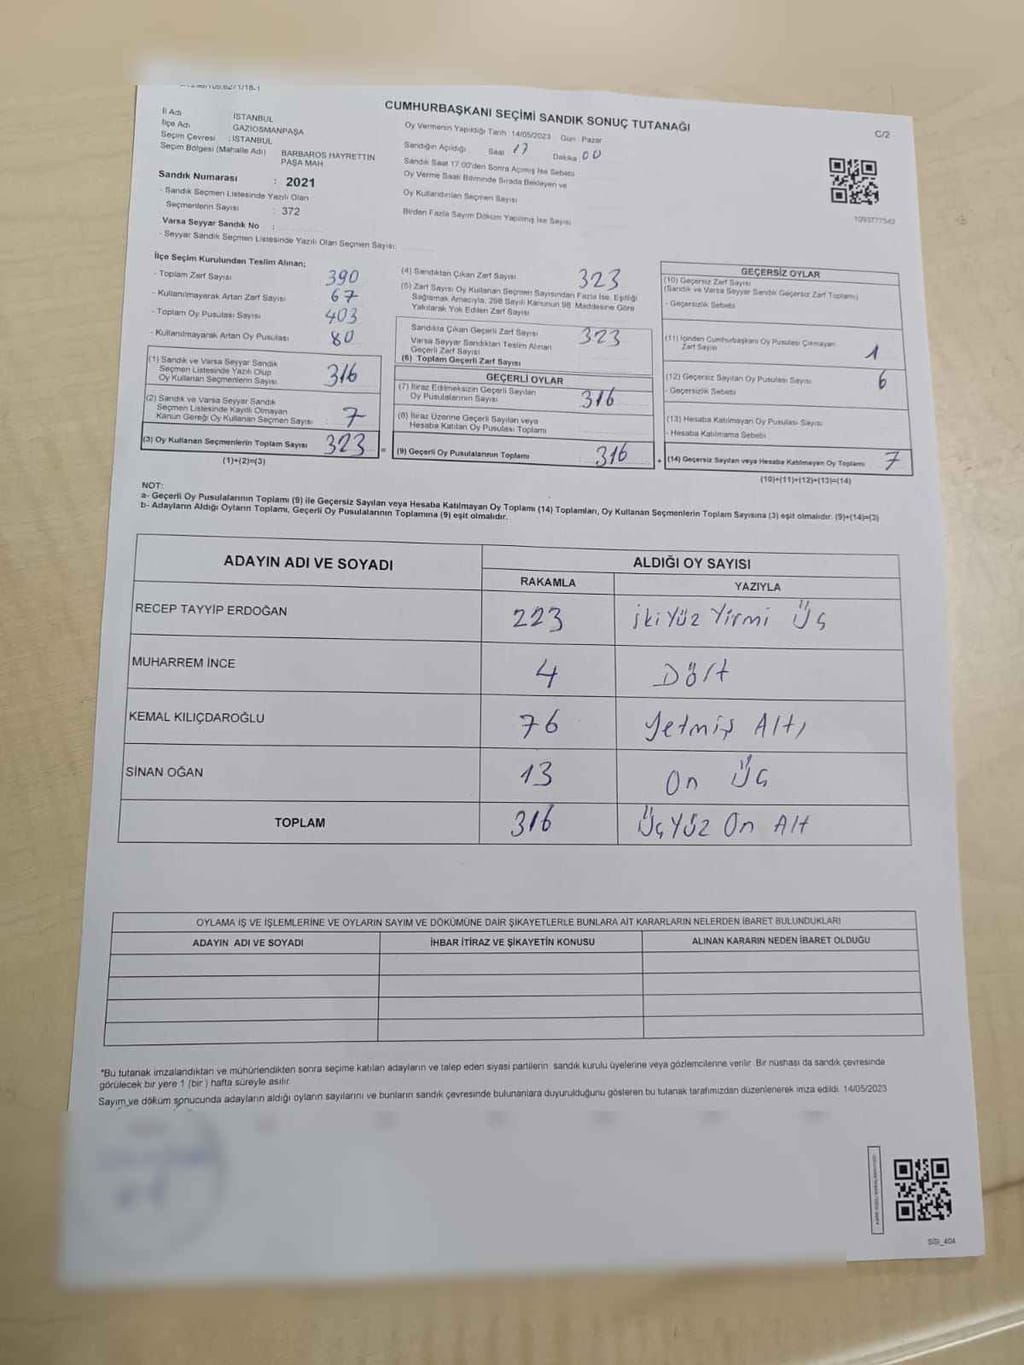 CUMHURBAŞKANI SEÇİMİ SANDIK SONUÇ TUTANAĞI
C/2
İl Adı : İSTANBUL
İlçe Adı : GAZİOSMANPAŞA
Seçim Çevresi : İSTANBUL
Seçim Bölgesi (Mahalle Adı) : BARBAROS HAYRETTİN PAŞA MAH.
Sandık Numarası : 2021
- Sandık Seçmen Listesinde Yazılı Olan
Seçmenlerin Sayısı : 372
Varsa Seyyar Sandık No :
- Seyyar Sandık Seçmen Listesinde Yazılı Olan Seçmen Sayısı:
Oy Vermenin Yapıldığı Tarih : 14/05/2023 Gün : Pazar
Sandığın Açıldığı Saat 17 Dakika 00
Sandık Saat 17:00'den Sonra Açılmış İse Sebebi
Oy Verme Saati Bitiminde Sırada Bekleyen ve
Oy Kullandırılan Seçmen Sayısı
Birden Fazla Sayım Döküm Yapılmış İse Sayısı
1093777543
İlçe Seçim Kurulundan Teslim Alınan;
- Toplam Zarf Sayısı 390
- Kullanılmayarak Artan Zarf Sayısı 67
- Toplam Oy Pusulası Sayısı 403
- Kullanılmayarak Artan Oy Pusulası 80
(1) Sandık ve Varsa Seyyar Sandık
Seçmen Listesinde Yazılı Olup
Oy Kullanan Seçmenlerin Sayısı 316
(2) Sandık ve Varsa Seyyar Sandık
Seçmen Listesinde Kayıtlı Olmayan
Kanun Gereği Oy Kullanan Seçmen Sayısı : 7
(3) Oy Kullanan Seçmenlerin Toplam Sayısı 323
(1)+(2)=(3)
(4) Sandıktan Çıkan Zarf Sayısı 323
(5) Zarf Sayısı Oy Kullanan Seçmen Sayısından Fazla İse, Eşitliği
Sağlamak Amacıyla, 298 Sayılı Kanunun 98. Maddesine Göre
Yakılarak Yok Edilen Zarf Sayısı
Sandıkta Çıkan Geçerli Zarf Sayısı 323
Varsa Seyyar Sandıktan Teslim Alınan
Geçerli Zarf Sayısı
(6) Toplam Geçerli Zarf Sayısı
GEÇERLİ OYLAR
(7) İtiraz Edilmeksizin Geçerli Sayılan
Oy Pusulalarının Sayısı 316
(8) İtiraz Üzerine Geçerli Sayılan veya
Hesaba Katılan Oy Pusulası Toplamı
= (9) Geçerli Oy Pusulalarının Toplamı 316
GEÇERSİZ OYLAR
(10) Geçersiz Zarf Sayısı
(Sandık ve Varsa Seyyar Sandık Geçersiz Zarf Toplamı)
- Geçersizlik Sebebi
(11) İçinden Cumhurbaşkanı Oy Pusulası Çıkmayan
Zarf Sayısı 1
(12) Geçersiz Sayılan Oy Pusulası Sayısı 6
- Geçersizlik Sebebi
(13) Hesaba Katılmayan Oy Pusulası Sayısı
- Hesaba Katılmama Sebebi
+ (14) Geçersiz Sayılan veya Hesaba Katılmayan Oy Toplamı 7
(10)+(11)+(12)+(13)=(14)
NOT:
a- Geçerli Oy Pusulalarının Toplamı (9) ile Geçersiz Sayılan veya Hesaba Katılmayan Oy Toplamı (14) Toplamları, Oy Kullanan Seçmenlerin Toplam Sayısına (3) eşit olmalıdır. (9)+(14)=(3)
b- Adayların Aldığı Oyların Toplamı, Geçerli Oy Pusulalarının Toplamına (9) eşit olmalıdır.
ADAYIN ADI VE SOYADI
ALDIĞI OY SAYISI
RAKAMLA YAZIYLA
RECEP TAYYİP ERDOĞAN 223 İki Yüz Yirmi Üç
MUHARREM İNCE 4 Dört
KEMAL KILIÇDAROĞLU 76 Yetmiş Altı
SİNAN OĞAN 13 On Üç
TOPLAM 316 ÜçYüz On Alt
OYLAMA İŞ VE İŞLEMLERİNE VE OYLARIN SAYIM VE DÖKÜMÜNE DAİR ŞİKAYETLERLE BUNLARA AİT KARARLARIN NELERDEN İBARET BULUNDUKLARI
ADAYIN ADI VE SOYADI
İHBAR İTİRAZ VE ŞİKAYETİN KONUSU
ALINAN KARARIN NEDEN İBARET OLDUĞU
*Bu tutanak imzalandıktan ve mühürlendikten sonra seçime katılan adayların ve talep eden siyasi partilerin sandık kurulu üyelerine veya gözlemcilerine verilir. Bir nüshası da sandık çevresinde
görülecek bir yere 1 (bir) hafta süreyle asılır.
Sayım ve döküm sonucunda adayların aldığı oyların sayılarını ve bunların sandık çevresinde bulunanlara duyurulduğunu gösteren bu tutanak tarafımızdan düzenlenerek imza edildi. 14/05/2023
SSI_404